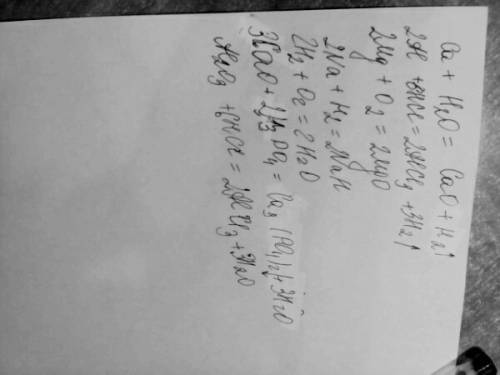 Ca + H2O = CaO + H2↑
2Al + 6HCl = 2AlCl3 + 3H2↑
2Mg + O2 = 2MgO
2Na + H2 = 2NaH
2H2 + O2 = 2H2O
3CaO + 2H3PO4 = Ca3(PO4)2 + 3H2O
Al2O3 + 6HCl = 2AlCl3 + 3H2O